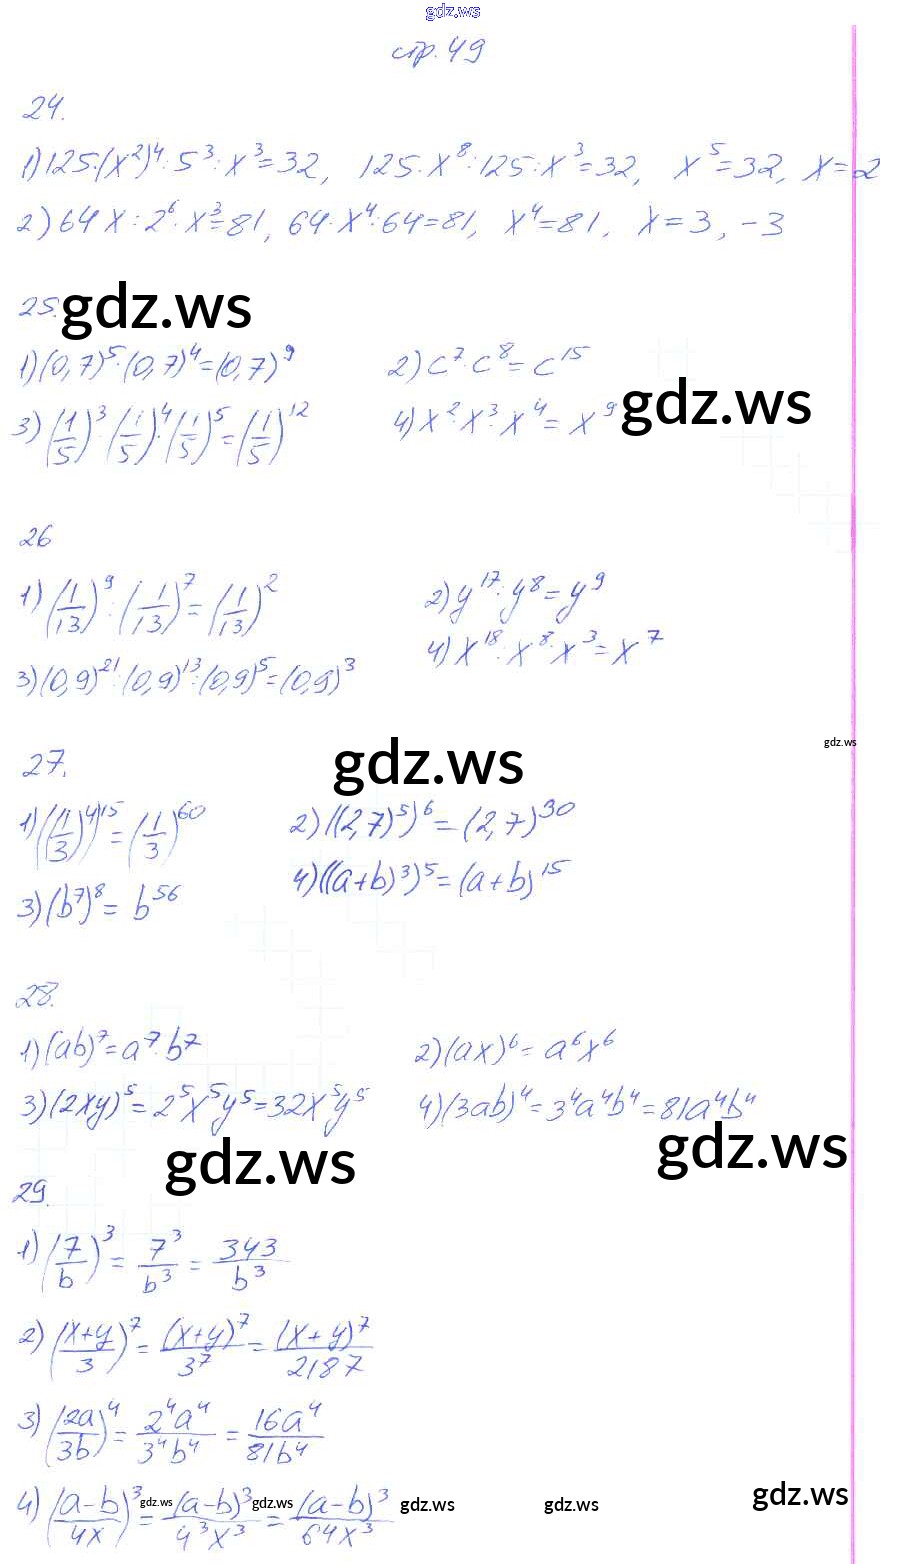 gdz.ws
стр. 49
24.
1) 125·(x²)⁴ : 5³ : x³ = 32, 125·x⁸ : 125 : x³ = 32, x⁵ = 32, x = 2
2) 64x : 2⁶ · x³ = 81, 64·x⁴ : 64 = 81, x⁴ = 81, x = 3, -3
25. gdz.ws
1) (0,7)⁵ · (0,7)⁴ = (0,7)⁹ 2) c⁷ · c⁸ = c¹⁵
gdz.ws
3) (1/5)³ · (1/5)⁴ · (1/5)⁵ = (1/5)¹² 4) x² · x³ · x⁴ = x⁹
26
1) (1/13)⁹ : (1/13)⁷ = (1/13)² 2) y¹⁷ : y⁸ = y⁹
3) (0,9)²¹ : (0,9)¹³ : (0,9)⁵ = (0,9)³ 4) x¹⁸ : x⁸ : x³ = x⁷
gdz.ws
27. gdz.ws
1) ((1/3)⁴)¹⁵ = (1/3)⁶⁰ 2) ((2,7)⁵)⁶ = (2,7)³⁰
3) (b⁷)⁸ = b⁵⁶ 4) ((a+b)³)⁵ = (a+b)¹⁵
28.
1) (ab)⁷ = a⁷ · b⁷ 2) (ax)⁶ = a⁶x⁶
3) (2xy)⁵ = 2⁵x⁵y⁵ = 32x⁵y⁵ 4) (3ab)⁴ = 3⁴a⁴b⁴ = 81a⁴b⁴
gdz.ws gdz.ws
29.
1) (7/b)³ = 7³/b³ = 343/b³
2) ((x+y)/3)⁷ = (x+y)⁷/3⁷ = (x+y)⁷/2187
3) (2a/3b)⁴ = 2⁴a⁴/3⁴b⁴ = 16a⁴/81b⁴
4) ((a-b)/4x)³ = (a-b)³/4³x³ = (a-b)³/64x³
gdz.ws gdz.ws gdz.ws gdz.ws gdz.ws